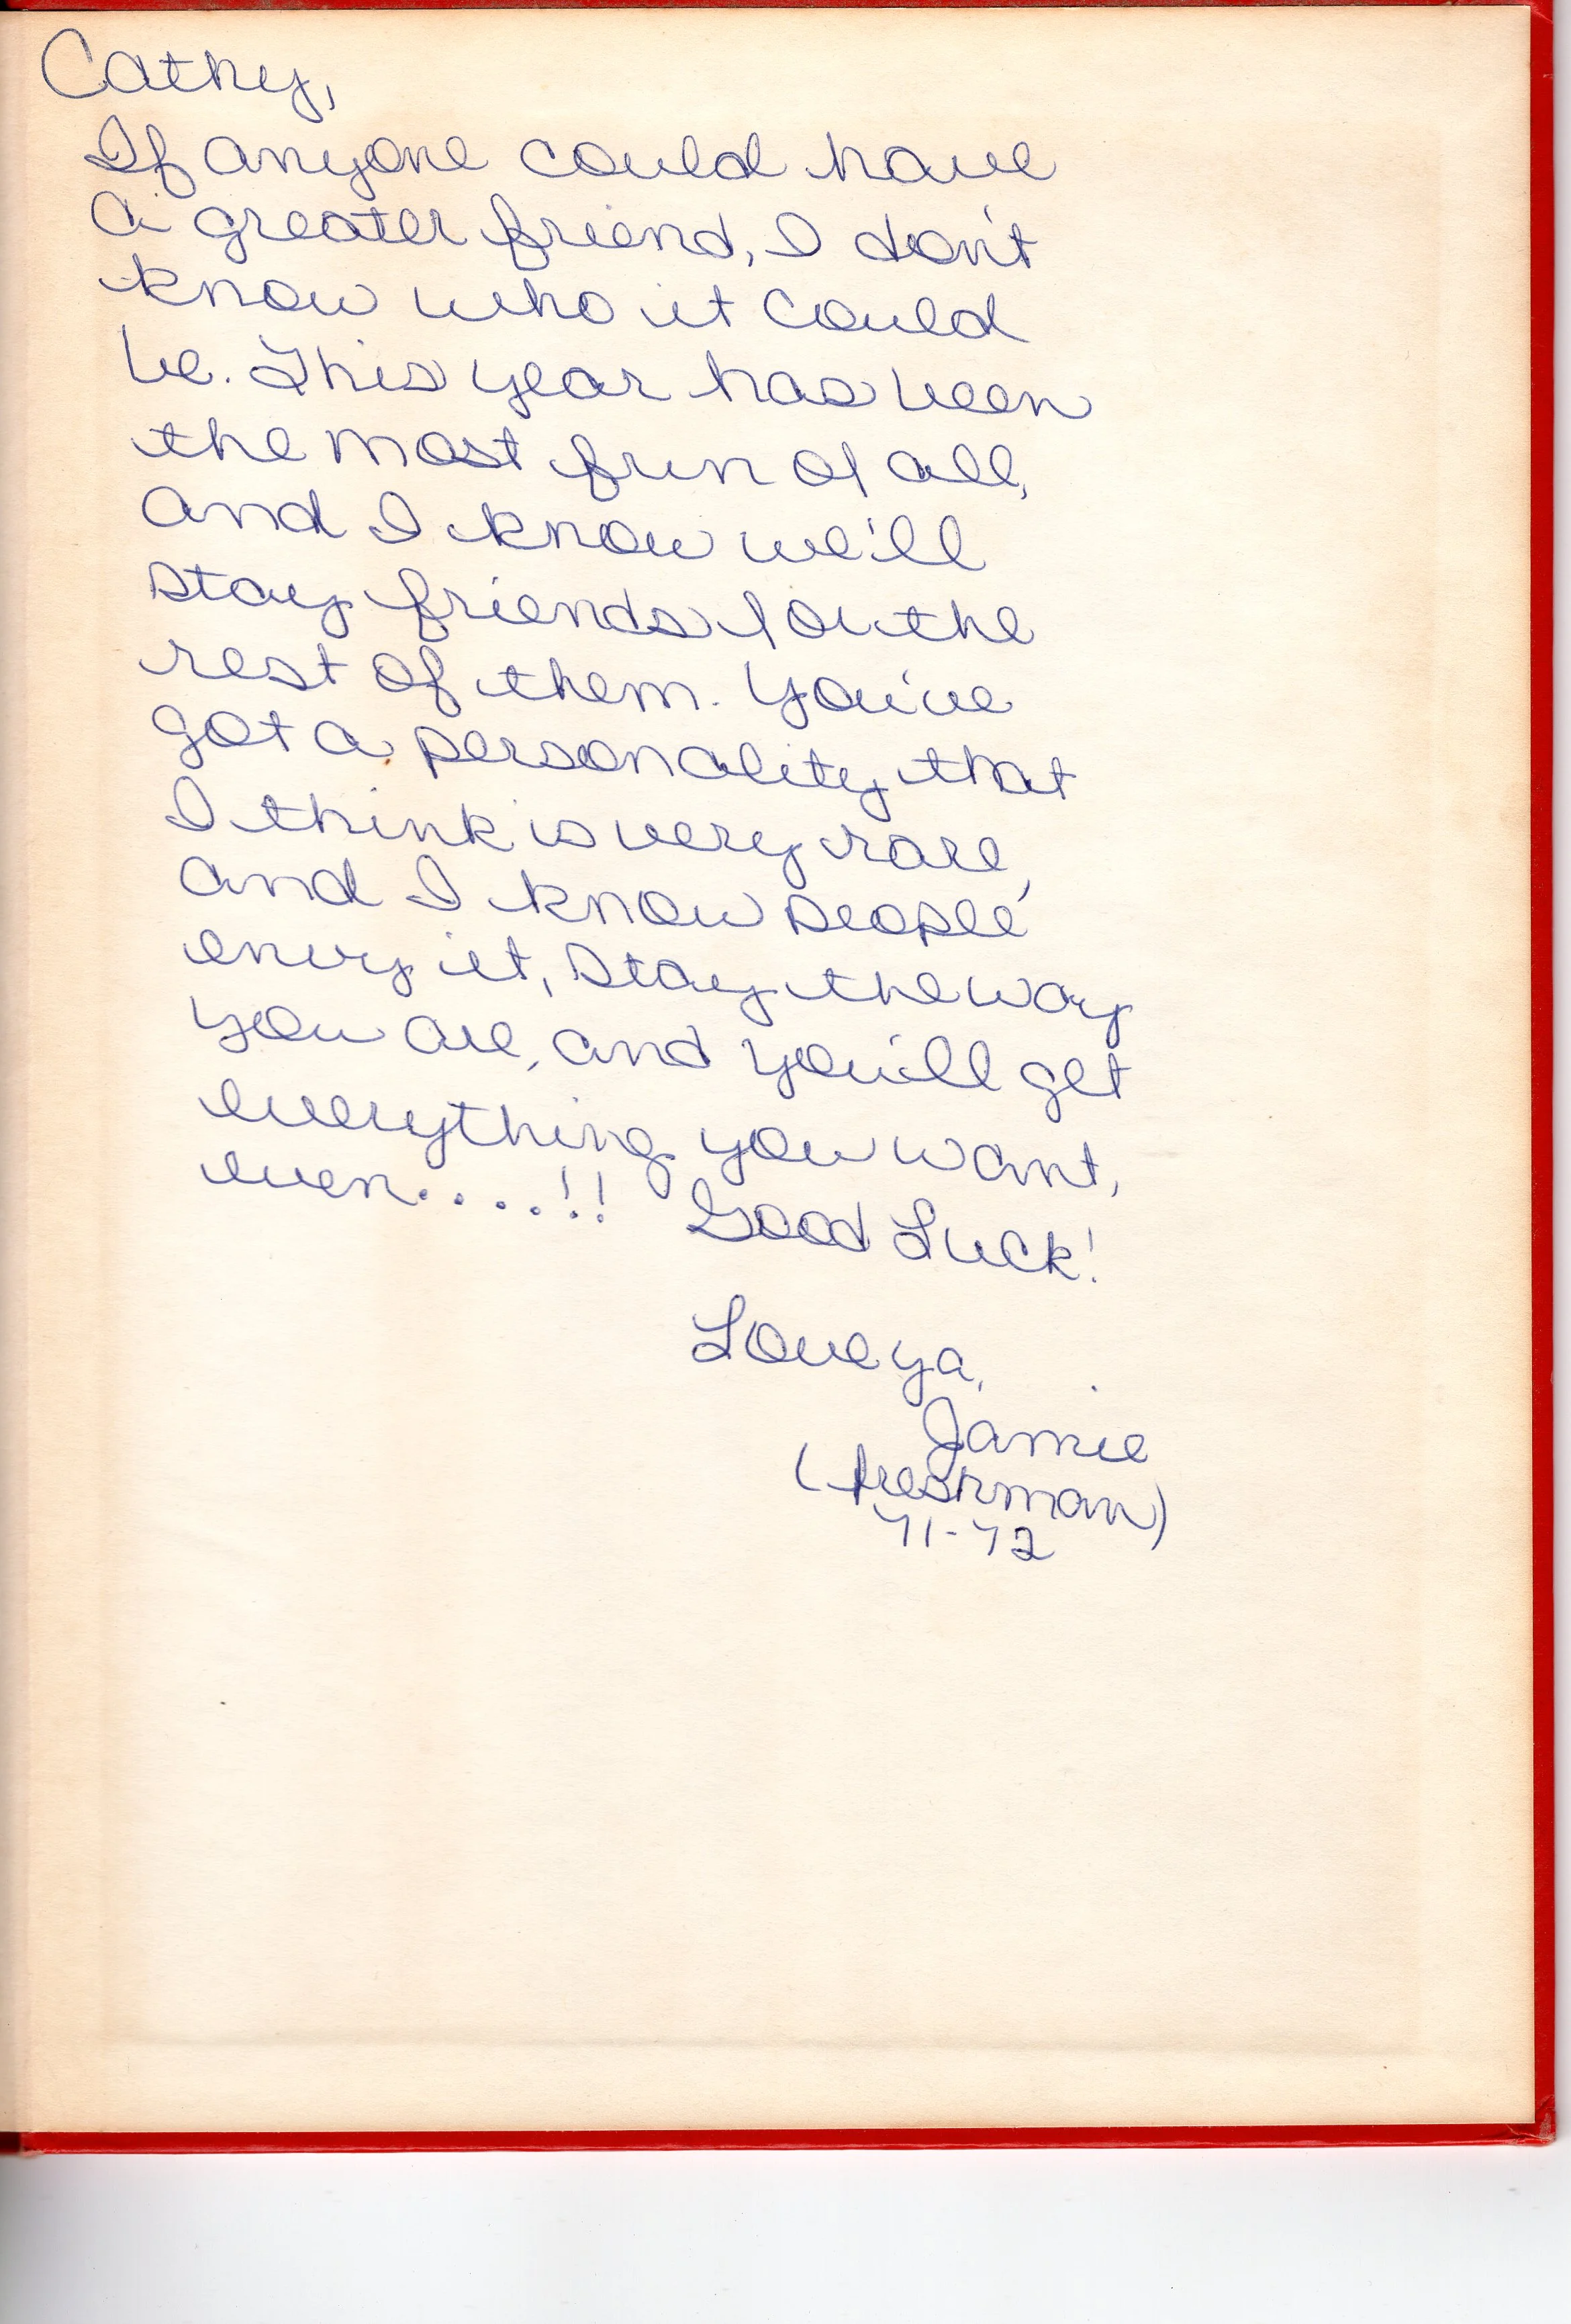 Cathy,
If anyone could have
a greater friend, I don't
know who it could
be. This year has been
the most fun of all,
and I know we'll
stay friends for the
rest of them. You've
got a personality that
I think is very rare,
and I know people
envy it, stay the way
you are, and you'll get
everything you want,
even....!! Good Luck!
Love ya,
Jamie
(freshman)
71-72